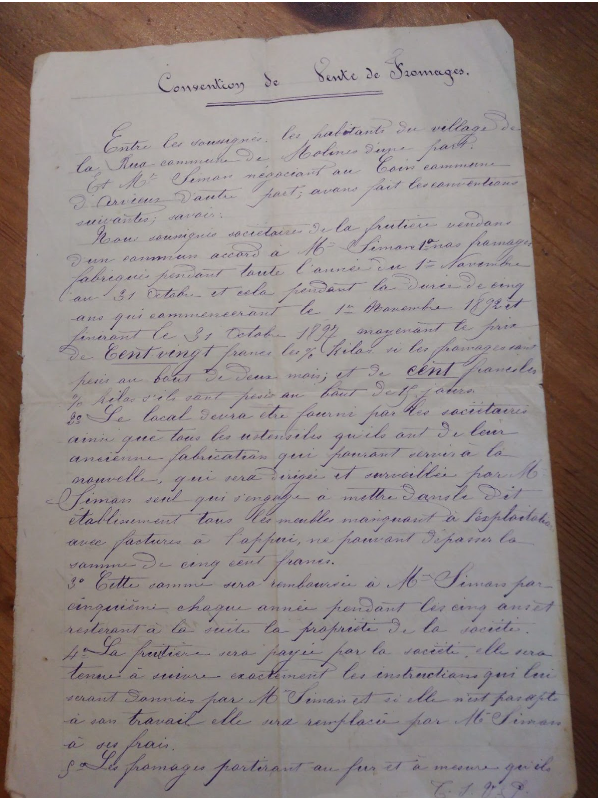 Convention de Vente de Fromages.
Entre les soussignés, les habitants du village de
la Rua commune de Molines d'une part.
Et Mr Siman négociant au Coin commune
d'Arvieux d'autre part; avons fait les conventions
suivantes; savoir.
Nous soussignés sociétaires de la fruitière vendons
d'un commun accord à Mr Siman 1º nos fromages
fabriqués pendant toute l'année du 1er Novembre
au 31 Octobre et cela pendant la durée de cinq
ans qui commenceront le 1er Novembre 1892 et
finiront le 31 Octobre 1897 moyenant le prix
de Cent vingt francs les % Kilos si les fromages sont
pesés au bout de deux mois; et de cent francs les
% Kilos s'ils sont pesés au bout de 15 jours.
2º Le local devra être fourni par les sociétaires
ainsi que tous les ustensiles qu'ils ont de leur
ancienne fabrication qui pouront servir à la
nouvelle, qui sera dirigée et surveillée par Mr
Siman seul qui s'engage à mettre dans le dit
établissement tous les meubles manquant à l'exploitation
avec factures à l'appui, ne pouvant dépasser la
somme de cinq cent francs.
3º Cette somme sera remboursée à Mr Siman par
cinquième chaque année pendant les cinq ans et
resteront à la suite la propriété de la société.
4º La fruitière sera payée par la société, elle sera
tenue à suivre exactement les instructions qui lui
seront données par Mr Siman et si elle n'est pas apte
à son travail elle sera remplacée par Mr Siman
à ses frais.
5º Les fromages partiront au fur et à mesure qu'ils